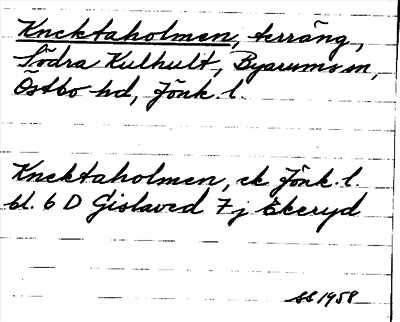 Knektaholmen, terräng,
Södra Kulhult, Byarums sn,
Östbo hd, Jönk. l.
Knektaholmen, ek Jönk. l.
bl. 6 D Gislaved 7 j Ekeryd
SS 1958